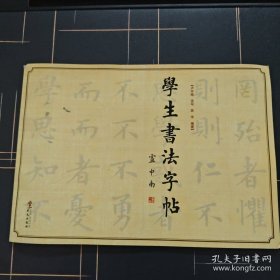 學生書法字帖
盧中南
學而不則罔
思而不則殆
知者不仁者
不憂勇不懼
孔夫子旧书网